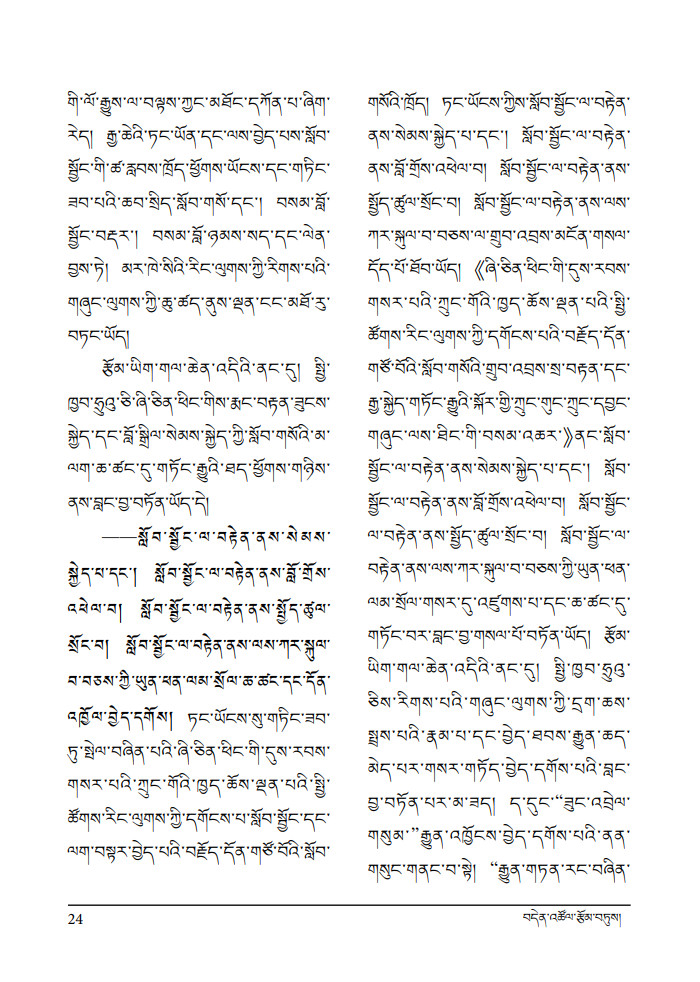 གི་ལོ་རྒྱུས་ལ་བལྟས་ཀྱང་མཐོང་དཀོན་པ་ཞིག་
རེད། རྒྱ་ཆེའི་ཏང་ཡོན་དང་ལས་བྱེད་པས་སློབ་
སྦྱོང་གི་ཚ་རླབས་ཁྲོད་ཕྱོགས་ཡོངས་དང་གཏིང་
ཟབ་པའི་ཆབ་སྲིད་སློབ་གསོ་དང་། བསམ་བློ་
སྦྱོང་བརྡར་། བསམ་བློ་ཉམས་སད་དང་ལེན་
བྱས་ཏེ། མར་ཁེ་སིའི་རིང་ལུགས་ཀྱི་རིགས་པའི་
གཞུང་ལུགས་ཀྱི་ཆུ་ཚད་ནུས་ལྡན་ངང་མཐོ་རུ་
བཏང་ཡོད།
རྩོམ་ཡིག་གལ་ཆེན་འདིའི་ནང་དུ། སྤྱི་
ཁྱབ་ཧྲུའུ་ཅི་ཞི་ཅིན་ཕིང་གིས་རྨང་བརྟན་ཟུངས་
སྐྱེད་དང་བློ་སྒྲིལ་སེམས་སྐྱེད་ཀྱི་སློབ་གསོའི་མ་
ལག་ཆ་ཚང་དུ་གཏོང་རྒྱུའི་ཐད་ཕྱོགས་གཉིས་
ནས་བླང་བྱ་བཏོན་ཡོད་དེ།
——སློབ་སྦྱོང་ལ་བརྟེན་ནས་སེམས་
སྐྱེད་པ་དང་། སློབ་སྦྱོང་ལ་བརྟེན་ནས་བློ་གྲོས་
འཕེལ་བ། སློབ་སྦྱོང་ལ་བརྟེན་ནས་སྤྱོད་ཚུལ་
སྲོང་བ། སློབ་སྦྱོང་ལ་བརྟེན་ནས་ལས་ཀར་སྐུལ་
བ་བཅས་ཀྱི་ཡུན་ཕན་ལམ་སྲོལ་ཆ་ཚང་དང་དོན་
འཁྱོལ་བྱེད་དགོས། ཏང་ཡོངས་སུ་གཏིང་ཟབ་
ཏུ་སྤེལ་བཞིན་པའི་ཞི་ཅིན་ཕིང་གི་དུས་རབས་
གསར་པའི་ཀྲུང་གོའི་ཁྱད་ཆོས་ལྡན་པའི་སྤྱི་
ཚོགས་རིང་ལུགས་ཀྱི་དགོངས་པ་སློབ་སྦྱོང་དང་
ལག་བསྟར་བྱེད་པའི་བརྗོད་དོན་གཙོ་བོའི་སློབ་
གསོའི་ཁྲོད། ཏང་ཡོངས་ཀྱིས་སློབ་སྦྱོང་ལ་བརྟེན་
ནས་སེམས་སྐྱེད་པ་དང་། སློབ་སྦྱོང་ལ་བརྟེན་
ནས་བློ་གྲོས་འཕེལ་བ། སློབ་སྦྱོང་ལ་བརྟེན་ནས་
སྤྱོད་ཚུལ་སྲོང་བ། སློབ་སྦྱོང་ལ་བརྟེན་ནས་ལས་
ཀར་སྐུལ་བ་བཅས་ལ་གྲུབ་འབྲས་མངོན་གསལ་
དོད་པོ་ཐོབ་ཡོད། 《ཞི་ཅིན་ཕིང་གི་དུས་རབས་
གསར་པའི་ཀྲུང་གོའི་ཁྱད་ཆོས་ལྡན་པའི་སྤྱི་
ཚོགས་རིང་ལུགས་ཀྱི་དགོངས་པའི་བརྗོད་དོན་
གཙོ་བོའི་སློབ་གསོའི་གྲུབ་འབྲས་སྲ་བརྟན་དང་
རྒྱ་སྐྱེད་གཏོང་རྒྱུའི་སྐོར་གྱི་ཀྲུང་གུང་ཀྲུང་དབྱང་
གཞུང་ལས་ཐིང་གི་བསམ་འཆར་》ནང་སློབ་
སྦྱོང་ལ་བརྟེན་ནས་སེམས་སྐྱེད་པ་དང་། སློབ་
སྦྱོང་ལ་བརྟེན་ནས་བློ་གྲོས་འཕེལ་བ། སློབ་སྦྱོང་
ལ་བརྟེན་ནས་སྤྱོད་ཚུལ་སྲོང་བ། སློབ་སྦྱོང་ལ་
བརྟེན་ནས་ལས་ཀར་སྐུལ་བ་བཅས་ཀྱི་ཡུན་ཕན་
ལམ་སྲོལ་གསར་དུ་འཛུགས་པ་དང་ཆ་ཚང་དུ་
གཏོང་བར་བླང་བྱ་གསལ་པོ་བཏོན་ཡོད། རྩོམ་
ཡིག་གལ་ཆེན་འདིའི་ནང་དུ། སྤྱི་ཁྱབ་ཧྲུའུ་
ཅིས་རིགས་པའི་གཞུང་ལུགས་ཀྱི་དྲག་ཆས་
སྤྲས་པའི་རྣམ་པ་དང་བྱེད་ཐབས་རྒྱུན་ཆད་
མེད་པར་གསར་གཏོད་བྱེད་དགོས་པའི་བླང་
བྱ་བཏོན་པར་མ་ཟད། ད་དུང་“ཟུང་འབྲེལ་
གསུམ་”རྒྱུན་འཁྱོངས་བྱེད་དགོས་པའི་ནན་
གསུང་གནང་བ་སྟེ། “རྒྱུན་གཏན་རང་བཞིན་
24
བདེན་འཚོལ་རྩོམ་བཏུས།